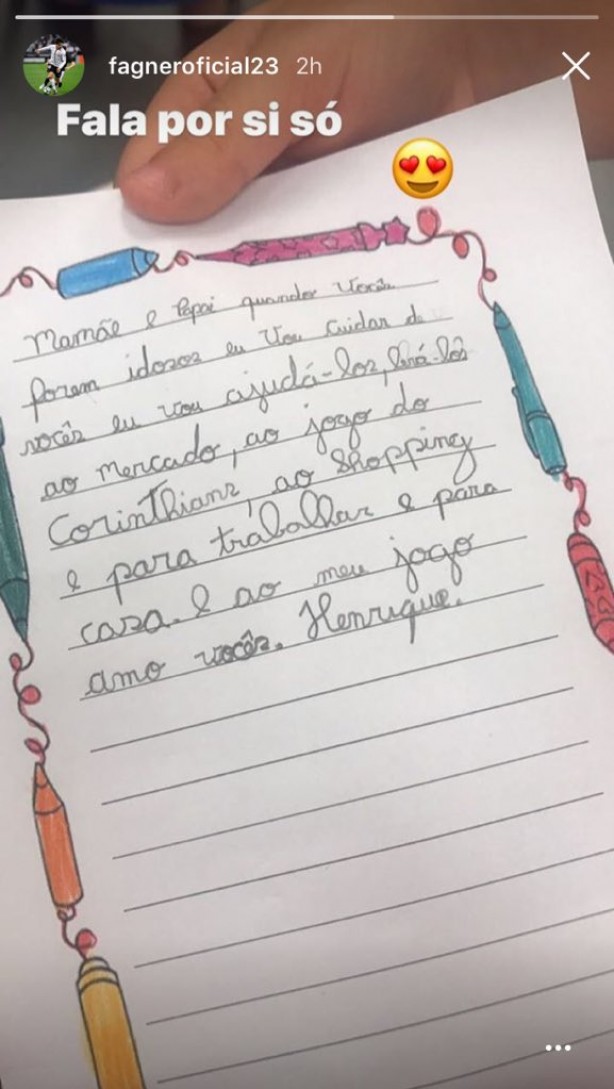 fagneroficial23 2h
Fala por si só
Mamãe e Papai quando vocês
forem idosos eu vou cuidar d
vocês eu vou ajudá-los, levá-los
ao mercado, ao jogo do
Corinthians, ao Shopping
e para trabalhar e para
casa. E ao meu jogo
amo vocês. Henrique.